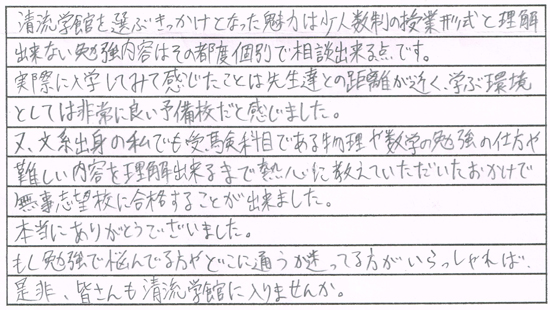 清流学館を選ぶきっかけとなった魅力は少人数制の授業形式と理解
出来ない勉強内容はその都度個別で相談出来る点です。
実際に入学してみて感じたことは先生達との距離が近く、学ぶ環境
としては非常に良い予備校だと感じました。
又、文系出身の私でも受験科目である物理や数学の勉強の仕方や
難しい内容を理解出来るまで熱心に教えていただいたおかげで
無事志望校に合格することが出来ました。
本当にありがとうございました。
もし勉強で悩んでる方やどこに通うか迷ってる方がいらっしゃれば、
是非、皆さんも清流学館に入りませんか。